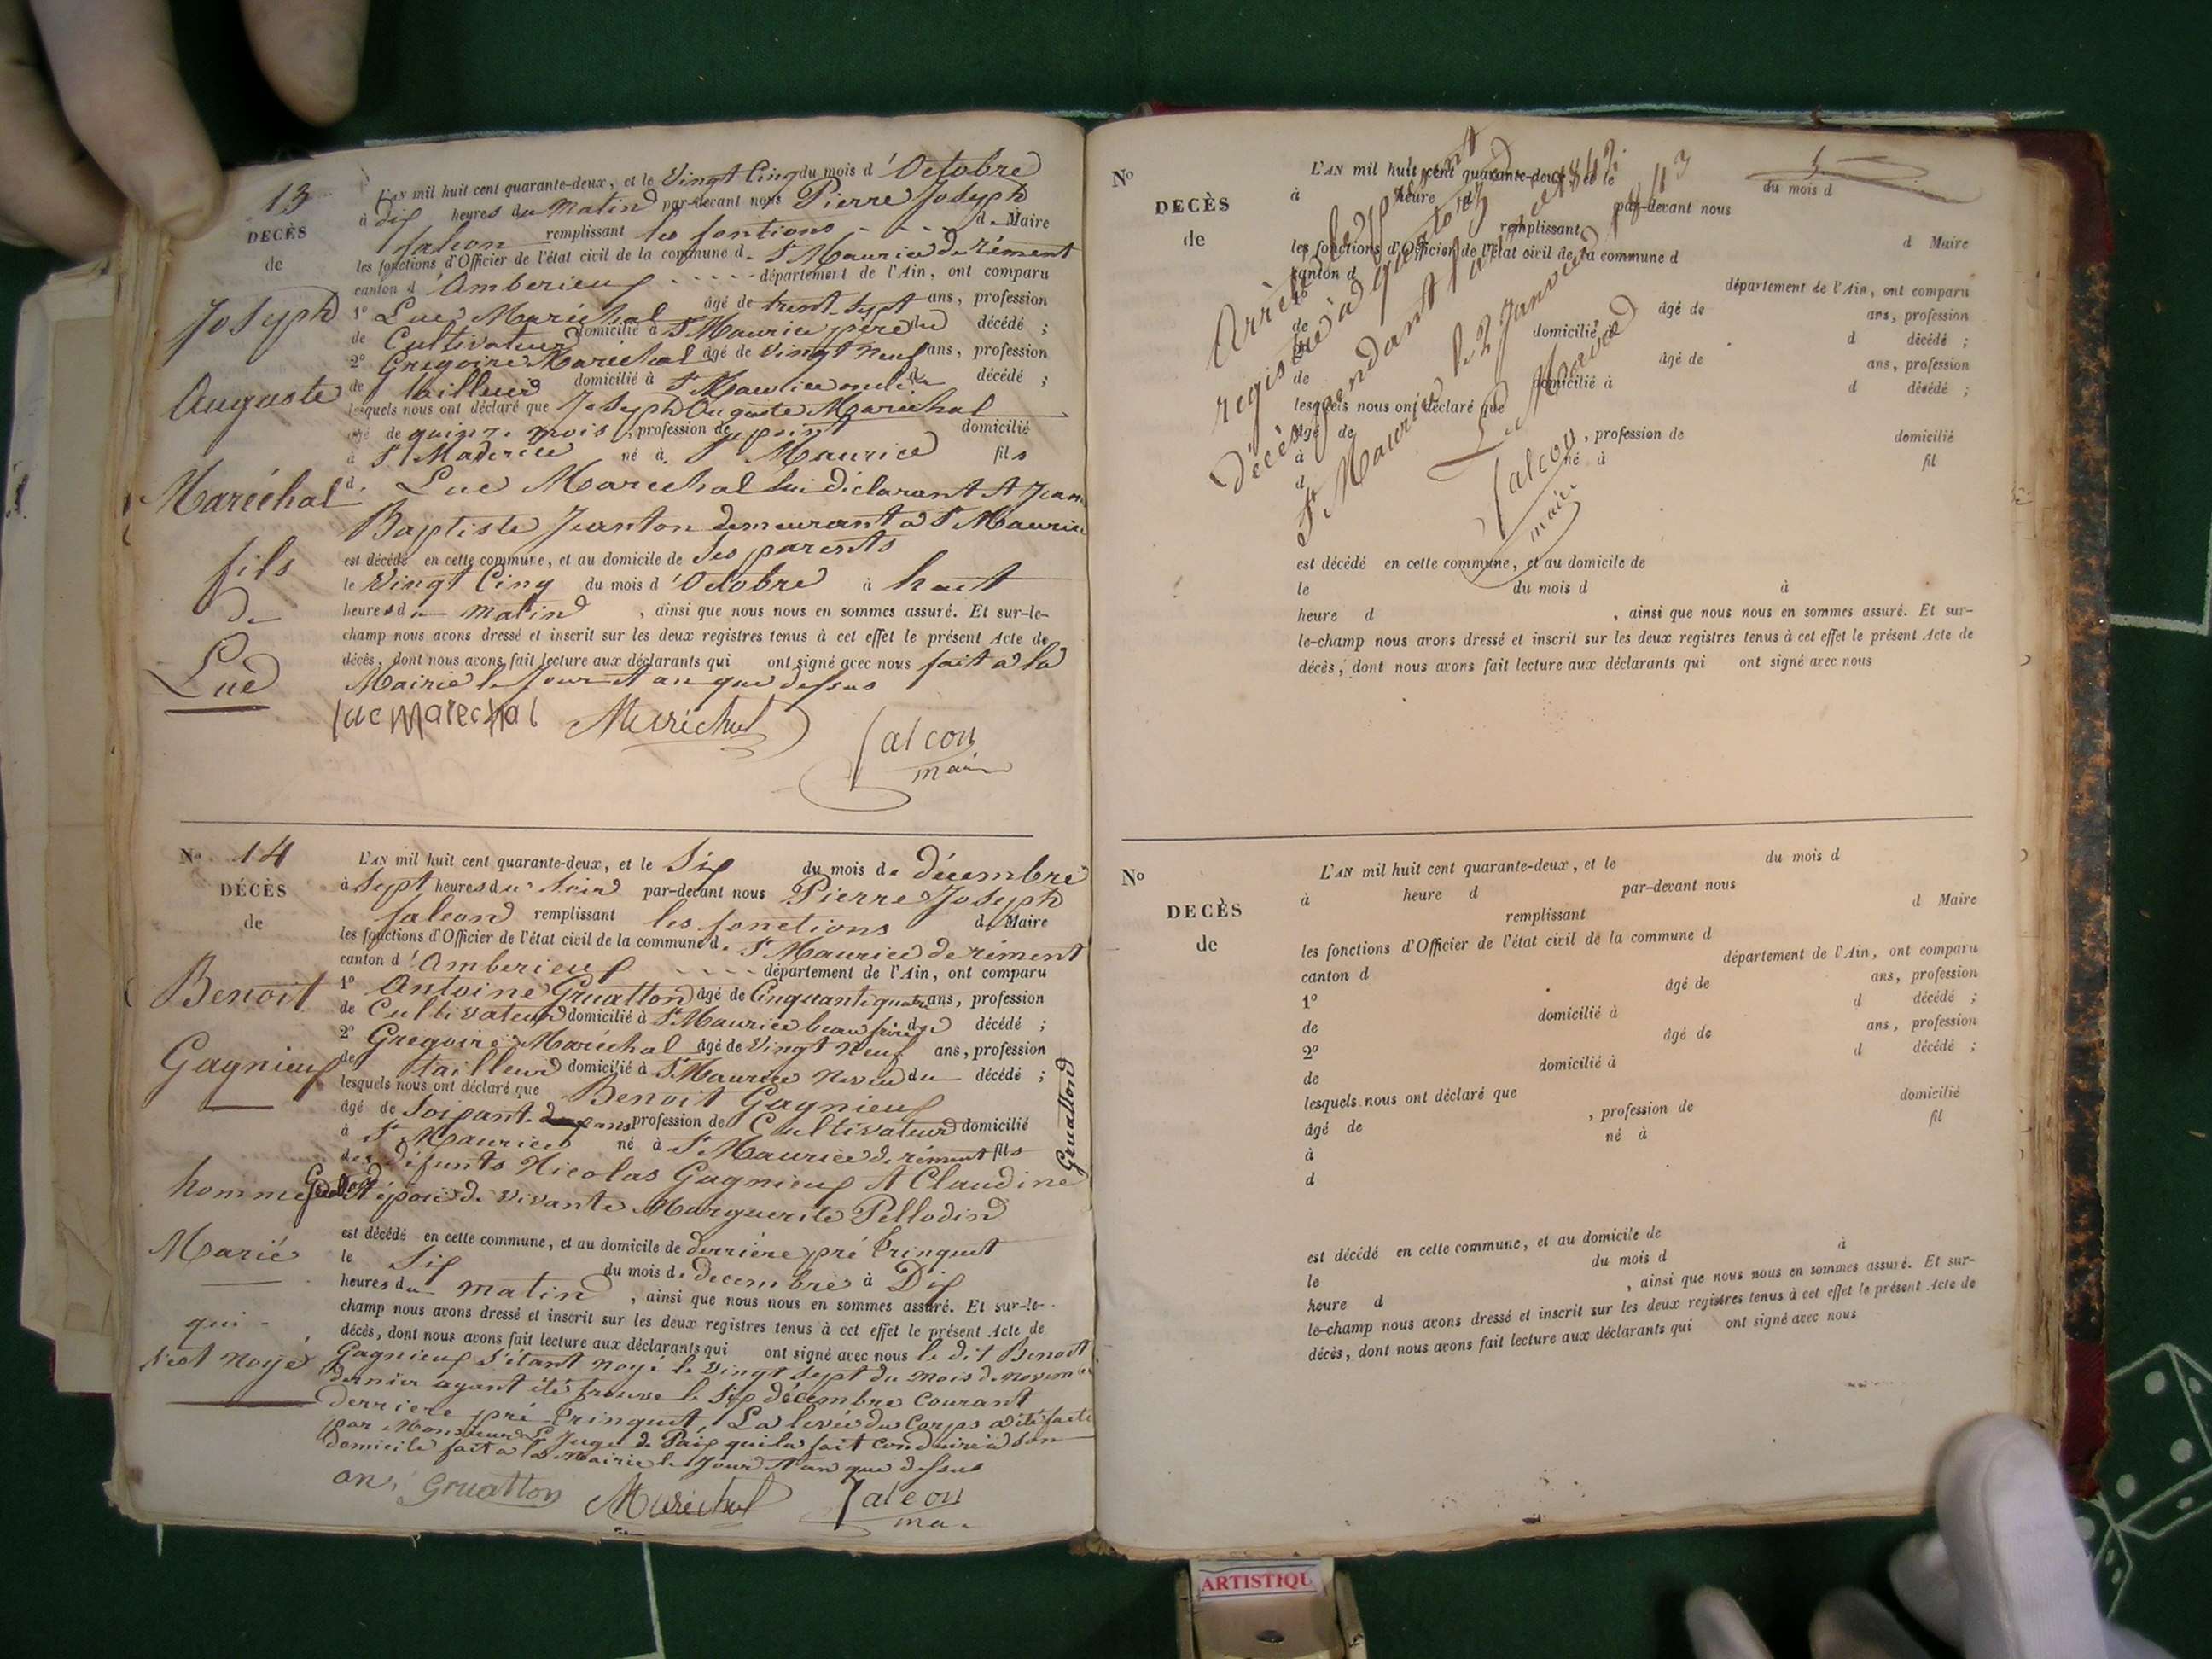 13
DECÈS
de
Joseph
Auguste
Maréchal
fils
de
Luc
L'AN mil huit cent quarante-deux, et le Vingt Cinq du mois d'Octobre
à dix heures du Matin par-devant nous Pierre Joseph
falcon remplissant les fontions d. Maire
les fonctions d'Officier de l'état civil de la commune d. St Maurice de rément
canton d'Amberieux - - - - département de l'Ain, ont comparu
1º Luc Maréchal âgé de trent-sept ans, profession
de Cultivateur domicilié à St Maurice père du décédé ;
2º Gregoire Maréchal âgé de Vingt neuf ans, profession
de tailleur domicilié à St Maurice du décédé ;
lesquels nous ont déclaré que Joseph Auguste Maréchal
âgé de quinze mois, profession de point domicilié
à St Maurice né à St Maurice fils
d. Luc Marechal lui déclarant et Jean
Baptiste Jeanton demeurant à St Maurice
est décédé en cette commune, et au domicile de Ses parents
le Vingt Cinq du mois d'Octobre à huit
heures du matin, ainsi que nous nous en sommes assuré. Et sur-le-
champ nous avons dressé et inscrit sur les deux registres tenus à cet effet le présent Acte de
décès, dont nous avons fait lecture aux déclarants qui ont signé avec nous fait à la
Mairie le Jour et an que dessus
luc marechal Maréchal falcon
maire
No 14
DÉCÈS
de
Benoit
Gagnieux
homme
Marié
qui
s'est noyé
L'AN mil huit cent quarante-deux, et le Six du mois de décembre
à Sept heures du Soir par-devant nous Pierre Joseph
falcon remplissant les fonctions d. Maire
les fonctions d'Officier de l'état civil de la commune d. St Maurice de rément
canton d'Amberieux - - - - département de l'Ain, ont comparu
1º Antoine Gruatton âgé de Cinquante quatre ans, profession
de Cultivateur domicilié à St Maurice beau frère du décédé ;
2º Gregoire Maréchal âgé de Vingt neuf ans, profession
de tailleur domicilié à St Maurice neveu du décédé ;
lesquels nous ont déclaré que Benoit Gagnieux
âgé de Soixante ans profession de Cultivateur domicilié
à St Maurice né à St Maurice de rément fils
des défunts Nicolas Gagnieux et Claudine
Gruatton
époux de vivante Marguerite Pellodin
est décédé en cette commune, et au domicile de derrière pré Trinquet
le Six du mois de decembre à Dix
heures du matin, ainsi que nous nous en sommes assuré. Et sur-le-
champ nous avons dressé et inscrit sur les deux registres tenus à cet effet le présent Acte de
décès, dont nous avons fait lecture aux déclarants qui ont signé avec nous le dit Benoit
Gagnieux s'étant noyé le Vingt sept du mois de novembre
dernier ayant été trouvé le Six décembre courant
derriere pré Trinquet, La levée du Corps a été faite
par Monsieur le Juge de Paix qui l'a fait conduire à son
domicile fait à la Mairie le Jour et an que dessus
an, Gruatton Maréchal falcon
ma.
No
DECÈS
de
L'AN mil huit cent quarante-deux, et le du mois d
à heure d par-devant nous
remplissant d Maire
les fonctions d'Officier de l'état civil de la commune d
canton d département de l'Ain, ont comparu
1º âgé de ans, profession
de domicilié à d décédé ;
2º âgé de ans, profession
de domicilié à d décédé ;
lesquels nous ont déclaré que
âgé de , profession de domicilié
à né à fil
d
Arrêté le présent
registre à quatorze
décès pendant l'année 1842
St Maurice le 2 Janvier 1843
Le Maire
falcon
maire
est décédé en cette commune, et au domicile de
le du mois d à
heure d , ainsi que nous nous en sommes assuré. Et sur-
le-champ nous avons dressé et inscrit sur les deux registres tenus à cet effet le présent Acte de
décès, dont nous avons fait lecture aux déclarants qui ont signé avec nous
No
DECÈS
de
L'AN mil huit cent quarante-deux, et le du mois d
à heure d par-devant nous
remplissant d Maire
les fonctions d'Officier de l'état civil de la commune d
canton d département de l'Ain, ont comparu
1º âgé de ans, profession
de domicilié à d décédé ;
2º âgé de ans, profession
de domicilié à d décédé ;
lesquels nous ont déclaré que
âgé de , profession de domicilié
à né à fil
d
est décédé en cette commune, et au domicile de
le du mois d à
heure d , ainsi que nous nous en sommes assuré. Et sur-
le-champ nous avons dressé et inscrit sur les deux registres tenus à cet effet le présent Acte de
décès, dont nous avons fait lecture aux déclarants qui ont signé avec nous
ARTISTIQU